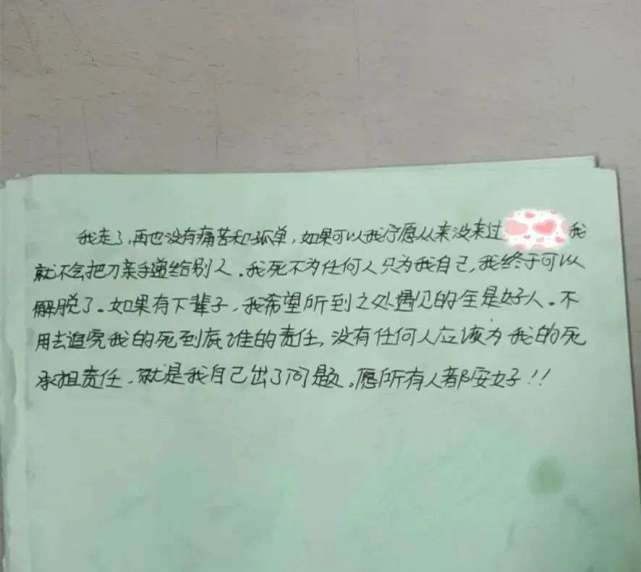 我走了,再也没有痛苦和孤单,如果可以我宁愿从来没来过 我
就不会把刀亲手递给别人。我死不为任何人只为我自己,我终于可以
解脱了。如果有下辈子,我希望所到之处遇见的全是好人。不
用去追究我的死到底谁的责任,没有任何人应该为我的死
承担责任,就是我自己出了问题。愿所有人都安好!!